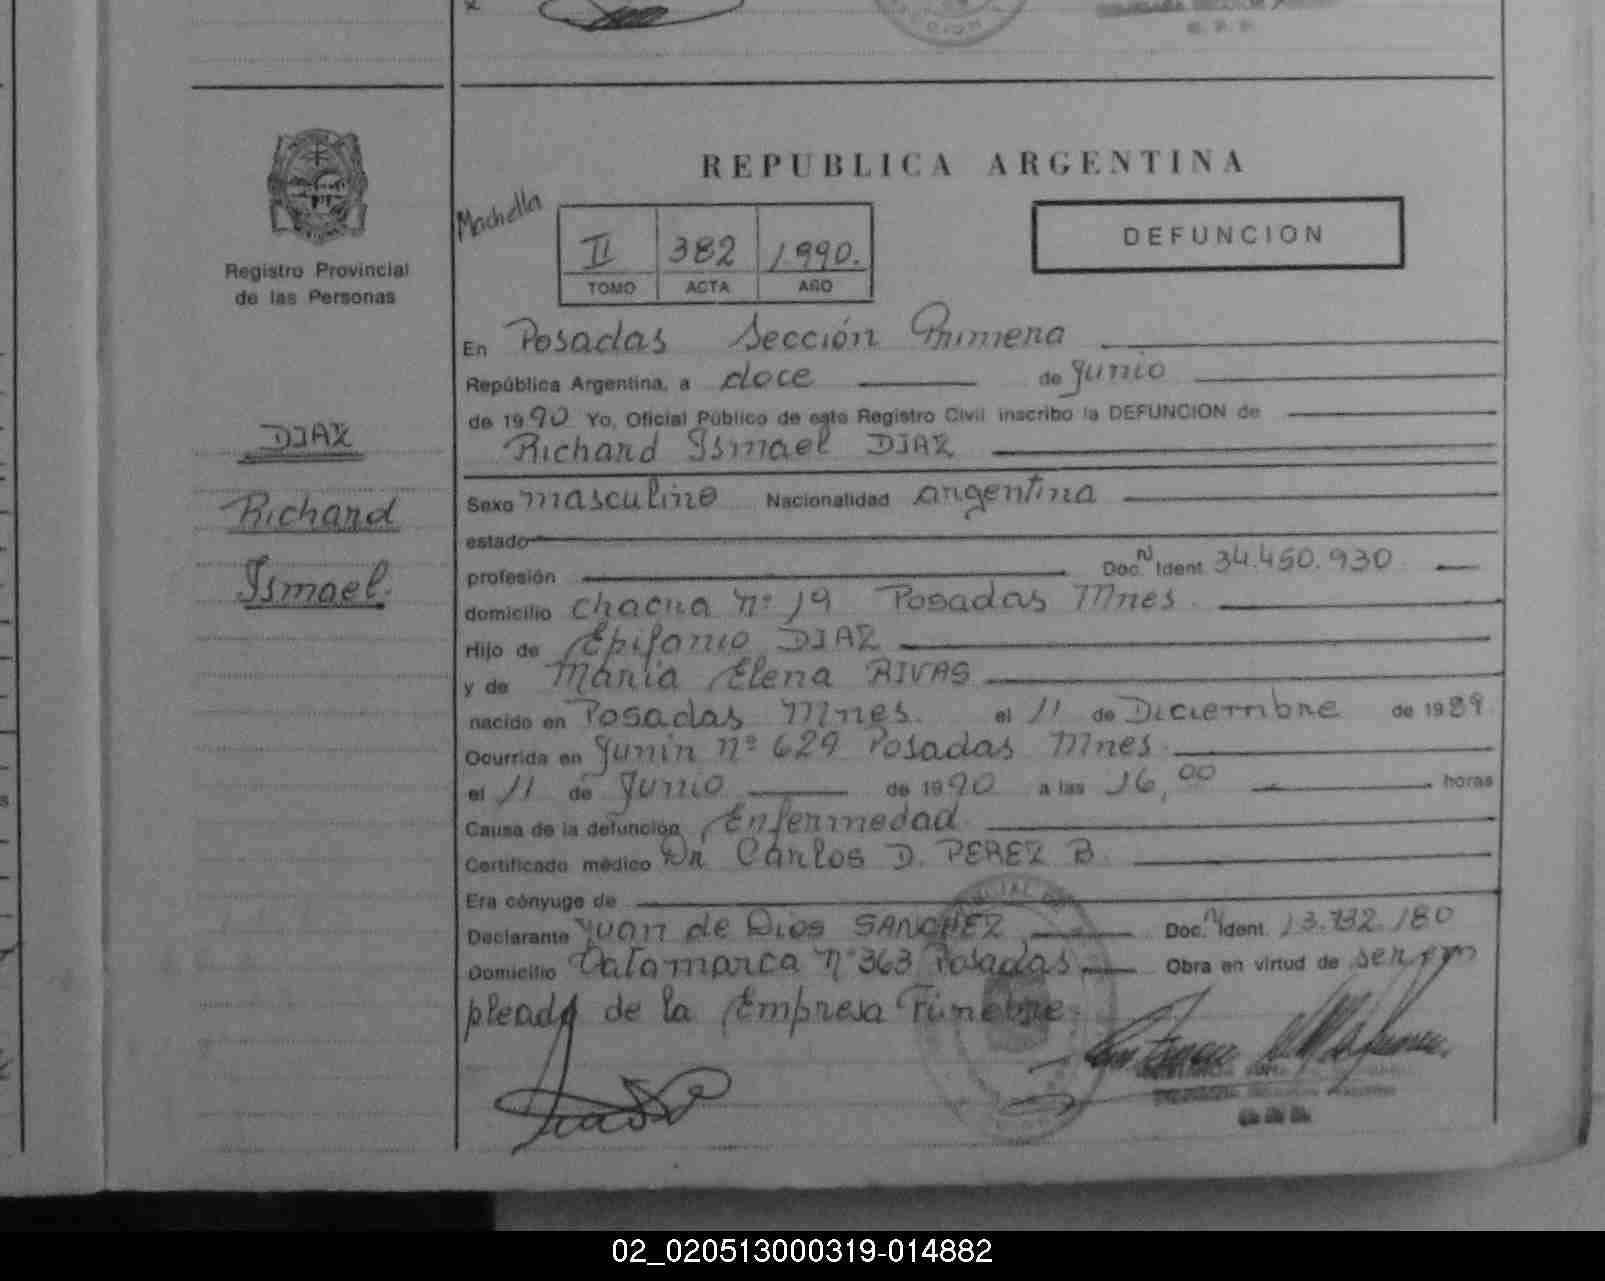 REPUBLICA ARGENTINA
Machella
II 382 1990.
TOMO ACTA AÑO
DEFUNCION
Registro Provincial
de las Personas
DIAZ
Richard
Ismael.
En Posadas Sección Primera
República Argentina, a doce de Junio
de 1990 Yo, Oficial Público de este Registro Civil inscribo la DEFUNCION de
Richard Ismael DIAZ
Sexo masculino Nacionalidad argentina
estado
profesión Doc. N Ident. 34.450.930
domicilio chacra nº 19 Posadas Mnes.
Hijo de Epifanio DIAZ
y de Maria Elena RIVAS
nacido en Posadas Mnes. el 11 de Diciembre de 1989
Ocurrida en Junin nº 629 Posadas Mnes.
el 11 de Junio de 1990 a las 16,00 horas
Causa de la defunción Enfermedad.
Certificado médico Dr Carlos D. PEREZ B.
Era cónyuge de
Declarante Juan de Dios SANCHEZ Doc. N Ident. 13.732.180
Domicilio Catamarca nº 363 Posadas Obra en virtud de ser em
pleado de la Empresa Fúnebre.
02_020513000319-014882